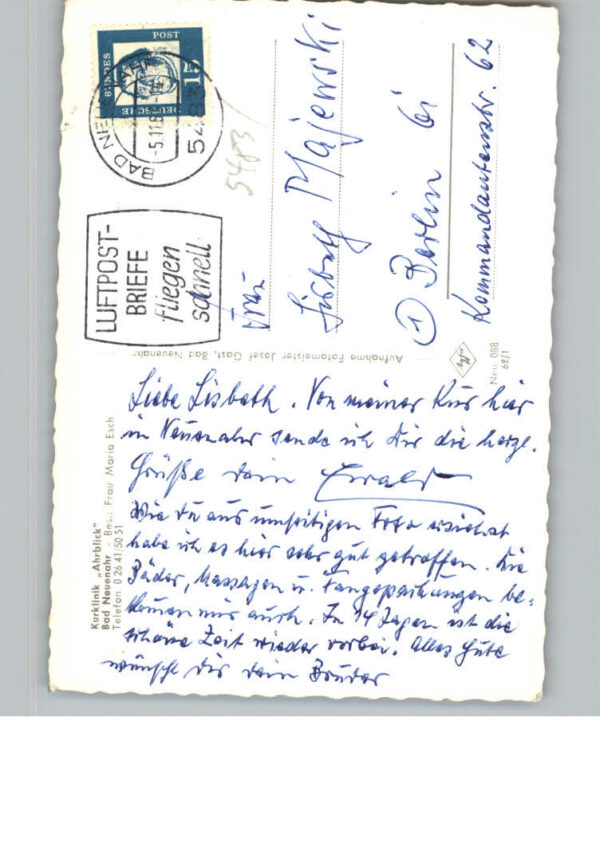 DEUTSCHE
BUNDES
POST
15
BAD NEUENAHR
-5.11.6
5483
LUFTPOST-
BRIEFE
fliegen
schnell
5483
Frau
Lisbeth Majewski
① Berlin 61
Kommandantenstr. 62
Aufnahme Fotomeister Josef Gast, Bad Neuenahr
Neu 088
62/1
Kurklinik „Ahrblick"
Bad Neuenahr - Bes.: Frau Maria Esch
Telefon 0 26 41/50 51
Liebe Lisbeth. Von meiner Kur hier
in Neuenahr sende ich Dir die herzl.
Grüße Dein Ewald
Wie Du aus umseitigen Foto ersiehst
habe ich es hier sehr gut getroffen. Die
Bäder, Massagen u. Fangopackungen be-
kommen mir auch. In 14 Tagen ist die
schöne Zeit wieder vorbei. Alles Gute
wünscht Dir Dein Bruder